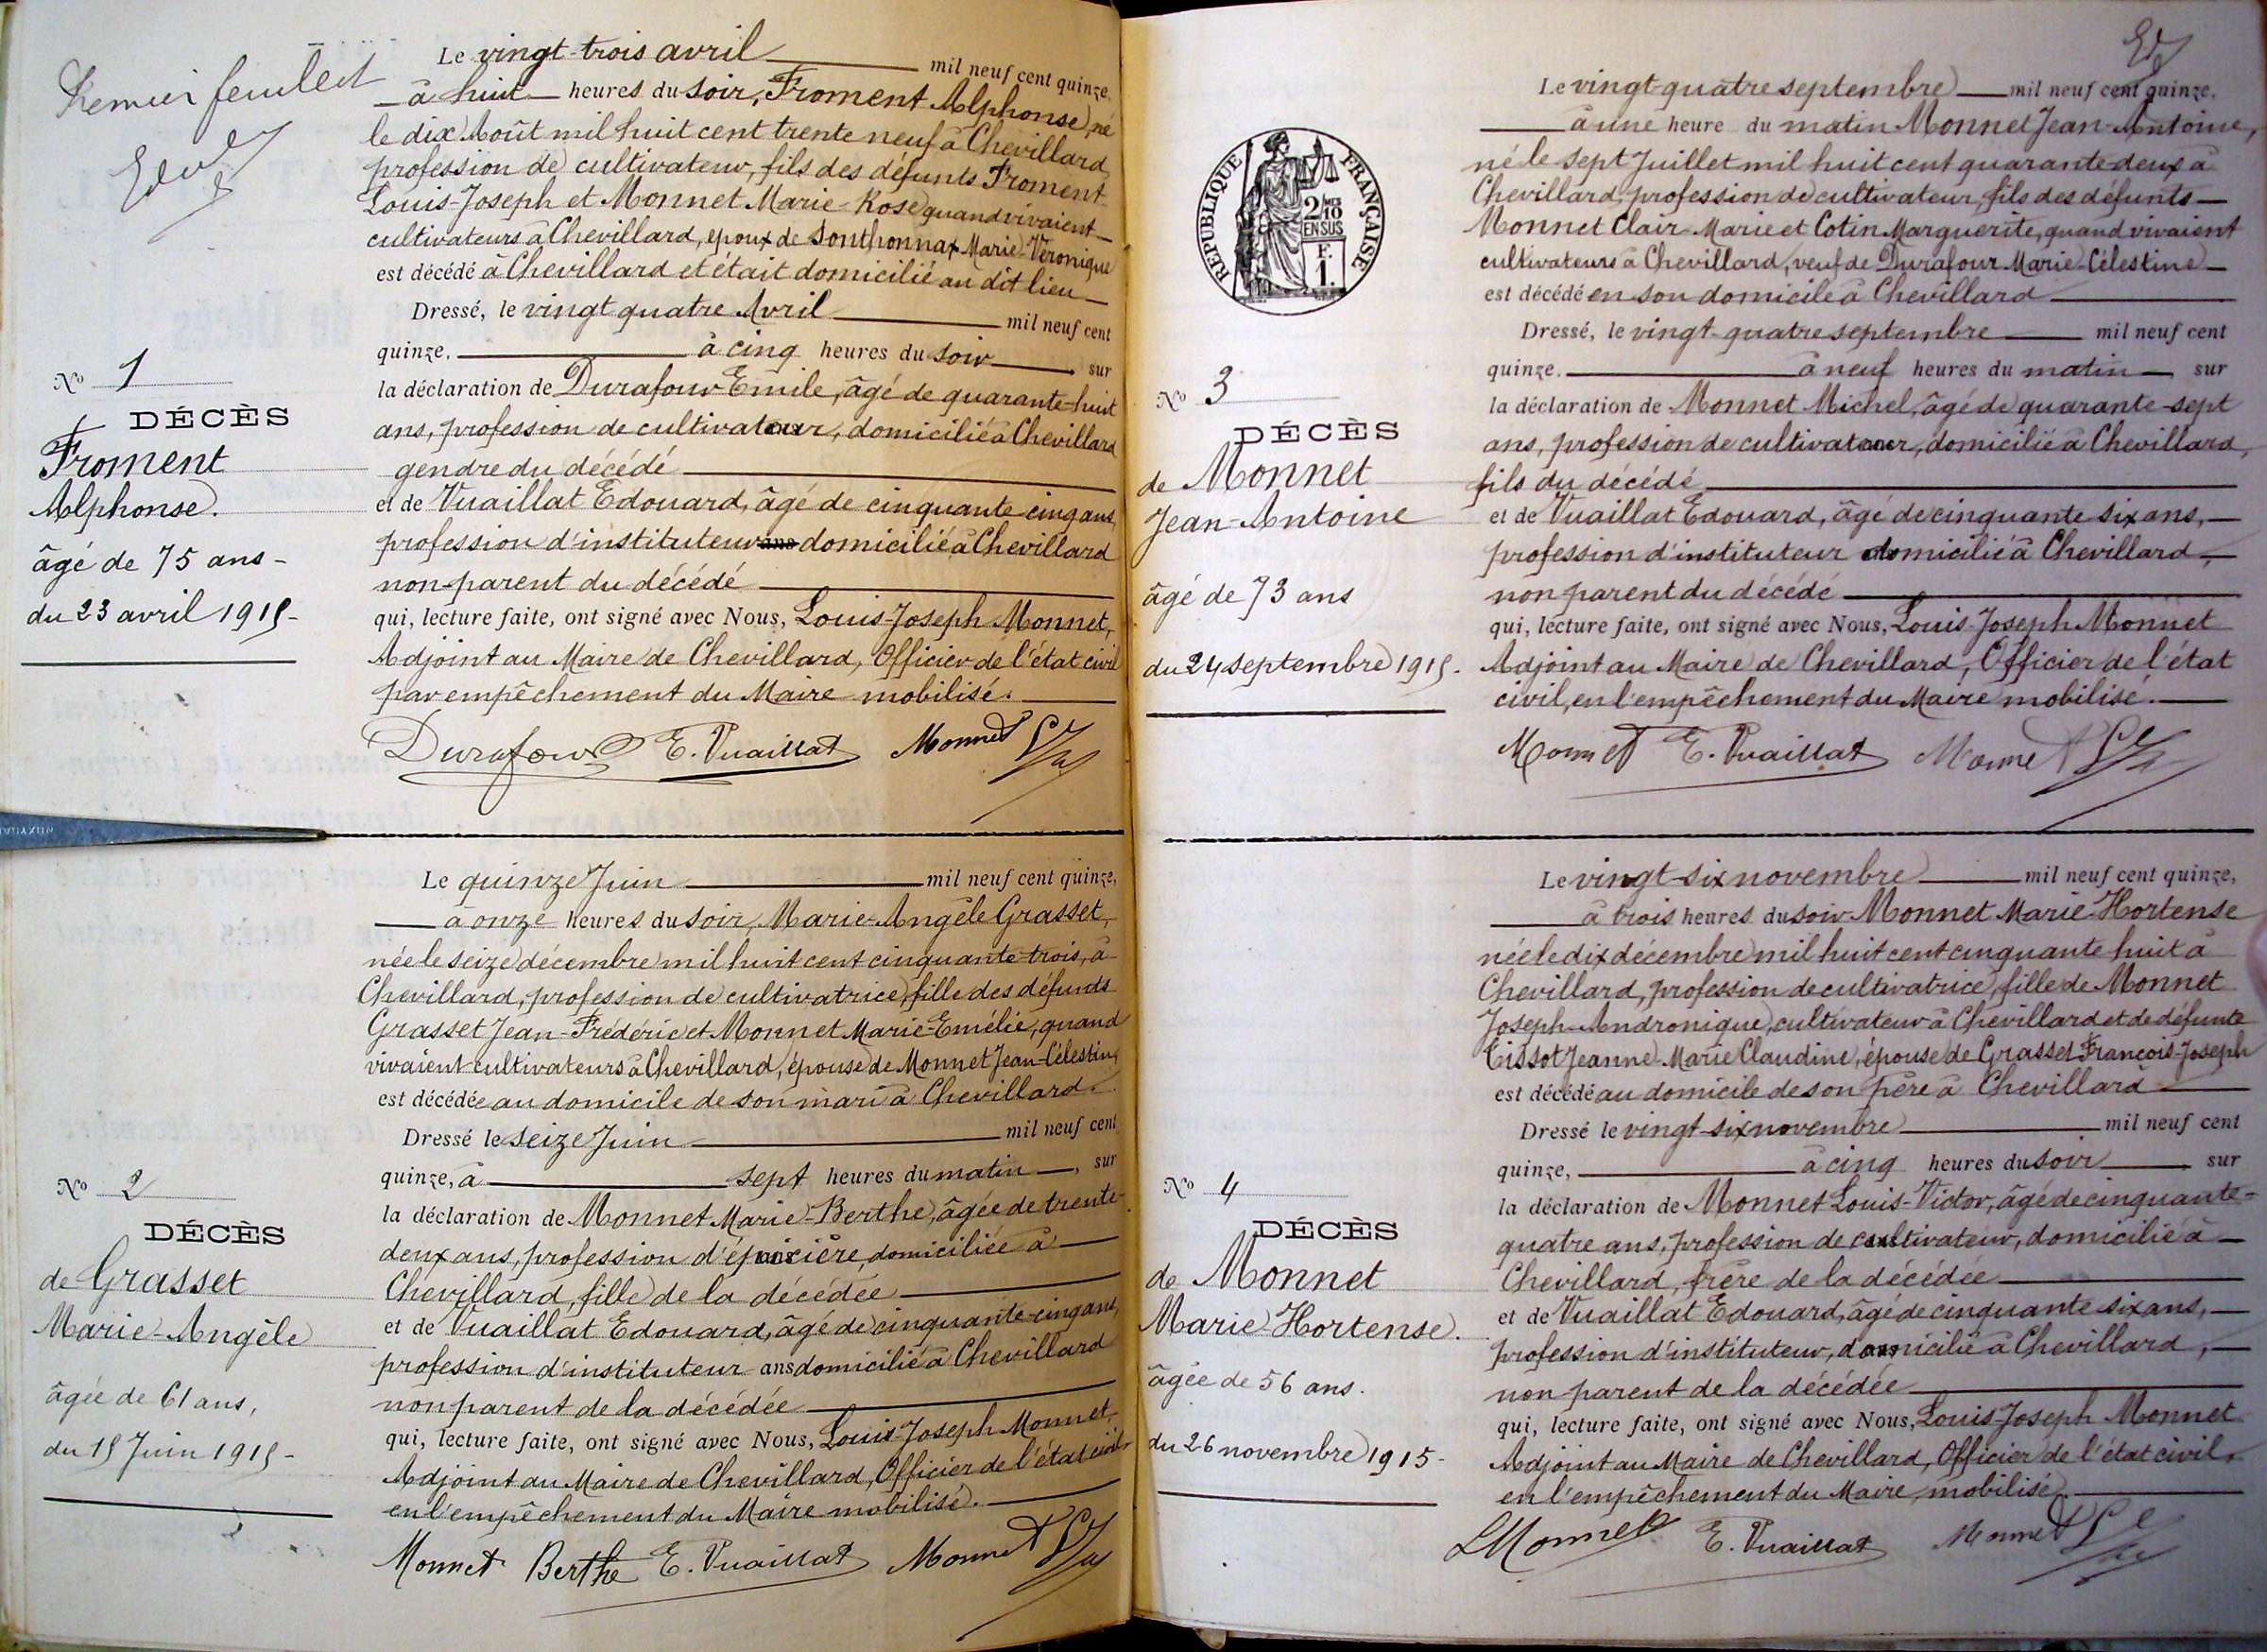 Premier feuillet
Le vingt-trois avril mil neuf cent quinze,
à huit heures du soir, Froment Alphonse, né
le dix Août mil huit cent trente neuf à Chevillard,
profession de cultivateur, fils des défunts Froment
Louis-Joseph et Monnet Marie-Rose quand vivaient
cultivateurs à Chevillard, époux de Sonthonnax Marie-Véronique
est décédé à Chevillard et était domicilié au dit lieu
Dressé, le vingt quatre Avril mil neuf cent
quinze, à cinq heures du soir, sur
la déclaration de Durafour Emile, âgé de quarante-huit
ans, profession de cultivateur, domicilié à Chevillard
gendre du décédé
et de Vuaillat Edouard, âgé de cinquante-cinq ans,
profession d'instituteur ans domicilié à Chevillard
non-parent du décédé
qui, lecture faite, ont signé avec Nous, Louis-Joseph Monnet,
Adjoint au Maire de Chevillard, Officier de l'état civil
par empêchement du Maire mobilisé.
Durafour E. Vuaillat Monnet
No 1
DÉCÈS
Froment
Alphonse.
âgé de 75 ans -
du 23 avril 1915 -
Le quinze Juin mil neuf cent quinze,
à onze heures du soir, Marie-Angèle Grasset,
née le seize décembre mil huit cent cinquante-trois, à
Chevillard, profession de cultivatrice, fille des défunts
Grasset Jean-Frédéric et Monnet Marie-Emélie, quand
vivaient cultivateurs à Chevillard, épouse de Monnet Jean-Célestin,
est décédée au domicile de son mari à Chevillard
Dressé le seize Juin mil neuf cent
quinze, à sept heures du matin, sur
la déclaration de Monnet Marie-Berthe, âgée de trente-
deux ans, profession d'épicière, domiciliée à
Chevillard, fille de la décédée
et de Vuaillat Edouard, âgé de cinquante-cinq ans,
profession d'instituteur ans domicilié à Chevillard
non parent de la décédée
qui, lecture faite, ont signé avec Nous, Louis-Joseph Monnet,
Adjoint au Maire de Chevillard, Officier de l'état civil
en l'empêchement du Maire mobilisé.
Monnet Berthe E. Vuaillat Monnet
No 2
DÉCÈS
de Grasset
Marie-Angèle
âgée de 61 ans,
du 15 Juin 1915 -
RÉPUBLIQUE FRANÇAISE
2/10
EN SUS
F.
1.
Le vingt-quatre septembre mil neuf cent quinze,
à une heure du matin Monnet Jean-Antoine,
né le sept Juillet mil huit cent quarante-deux à
Chevillard, profession de cultivateur, fils des défunts
Monnet Clair-Marie et Cotin Marguerite, quand vivaient
cultivateurs à Chevillard, veuf de Durafour Marie-Célestine
est décédé en son domicile à Chevillard
Dressé, le vingt-quatre septembre mil neuf cent
quinze, à neuf heures du matin sur
la déclaration de Monnet Michel, âgé de quarante-sept
ans, profession de cultivateur, domicilié à Chevillard,
fils du décédé
et de Vuaillat Edouard, âgé de cinquante six ans,
profession d'instituteur domicilié à Chevillard,
non parent du décédé
qui, lecture faite, ont signé avec Nous, Louis-Joseph Monnet
Adjoint au Maire de Chevillard, Officier de l'état
civil, en l'empêchement du Maire mobilisé.
Monnet E. Vuaillat Monnet
No 3
DÉCÈS
de Monnet
Jean-Antoine
âgé de 73 ans
du 24 septembre 1915.
Le vingt-six novembre mil neuf cent quinze,
à trois heures du soir Monnet Marie-Hortense
née le dix décembre mil huit cent cinquante huit à
Chevillard, profession de cultivatrice, fille de Monnet
Joseph-Andronique, cultivateur à Chevillard et de défunte
Tissot Jeanne-Marie Claudine, épouse de Grasset François-Joseph
est décédé au domicile de son père à Chevillard
Dressé le vingt-six novembre mil neuf cent
quinze, à cinq heures du soir sur
la déclaration de Monnet Louis-Victor, âgé de cinquante-
quatre ans, profession de cultivateur, domicilié à
Chevillard, frère de la décédée
et de Vuaillat Edouard, âgé de cinquante six ans,
profession d'instituteur, domicilié à Chevillard,
non parent de la décédée
qui, lecture faite, ont signé avec Nous, Louis-Joseph Monnet
Adjoint au Maire de Chevillard, Officier de l'état civil,
en l'empêchement du Maire, mobilisé.
LMonnet E. Vuaillat Monnet
No 4
DÉCÈS
de Monnet
Marie-Hortense.
âgée de 56 ans.
du 26 novembre 1915 -